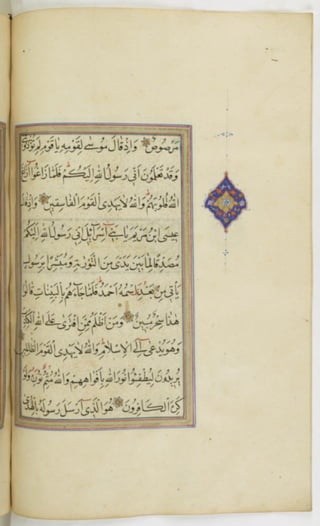 مرصوص وإذ قال موسى لقومه يا قوم لم تؤذونني
وقد تعلمون أني رسول الله إليكم فلما زاغوا أزاغ
الله قلوبهم والله لا يهدي القوم الفاسقين وإذ قال
عيسى ابن مريم يا بني إسرائيل إني رسول الله إليكم
مصدقا لما بين يدي من التورية ومبشرا برسول
يأتي من بعدي اسمه أحمد فلما جاءهم بالبينات قالوا
هذا سحر مبين ومن أظلم ممن افترى على الله الكذب
وهو يدعى إلى الإسلام والله لا يهدي القوم الظالمين
يريدون ليطفئوا نور الله بأفواههم والله متم نوره ولو
كره الكافرون هو الذي أرسل رسوله بالهدى